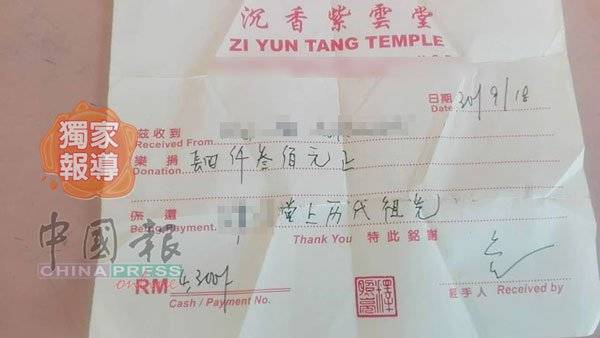 沉香紫雲堂
ZI YUN TANG TEMPLE
日期 Date 30/9/18
茲收到
Received From
樂捐 Donation 肆仟叁佰元正
係還 Being Payment. 堂上历代祖先
Thank You 特此銘謝
RM 4,300/-
Cash / Payment No.
經手人 Received by
獨家
報導
中國報
CHINA PRESS
online